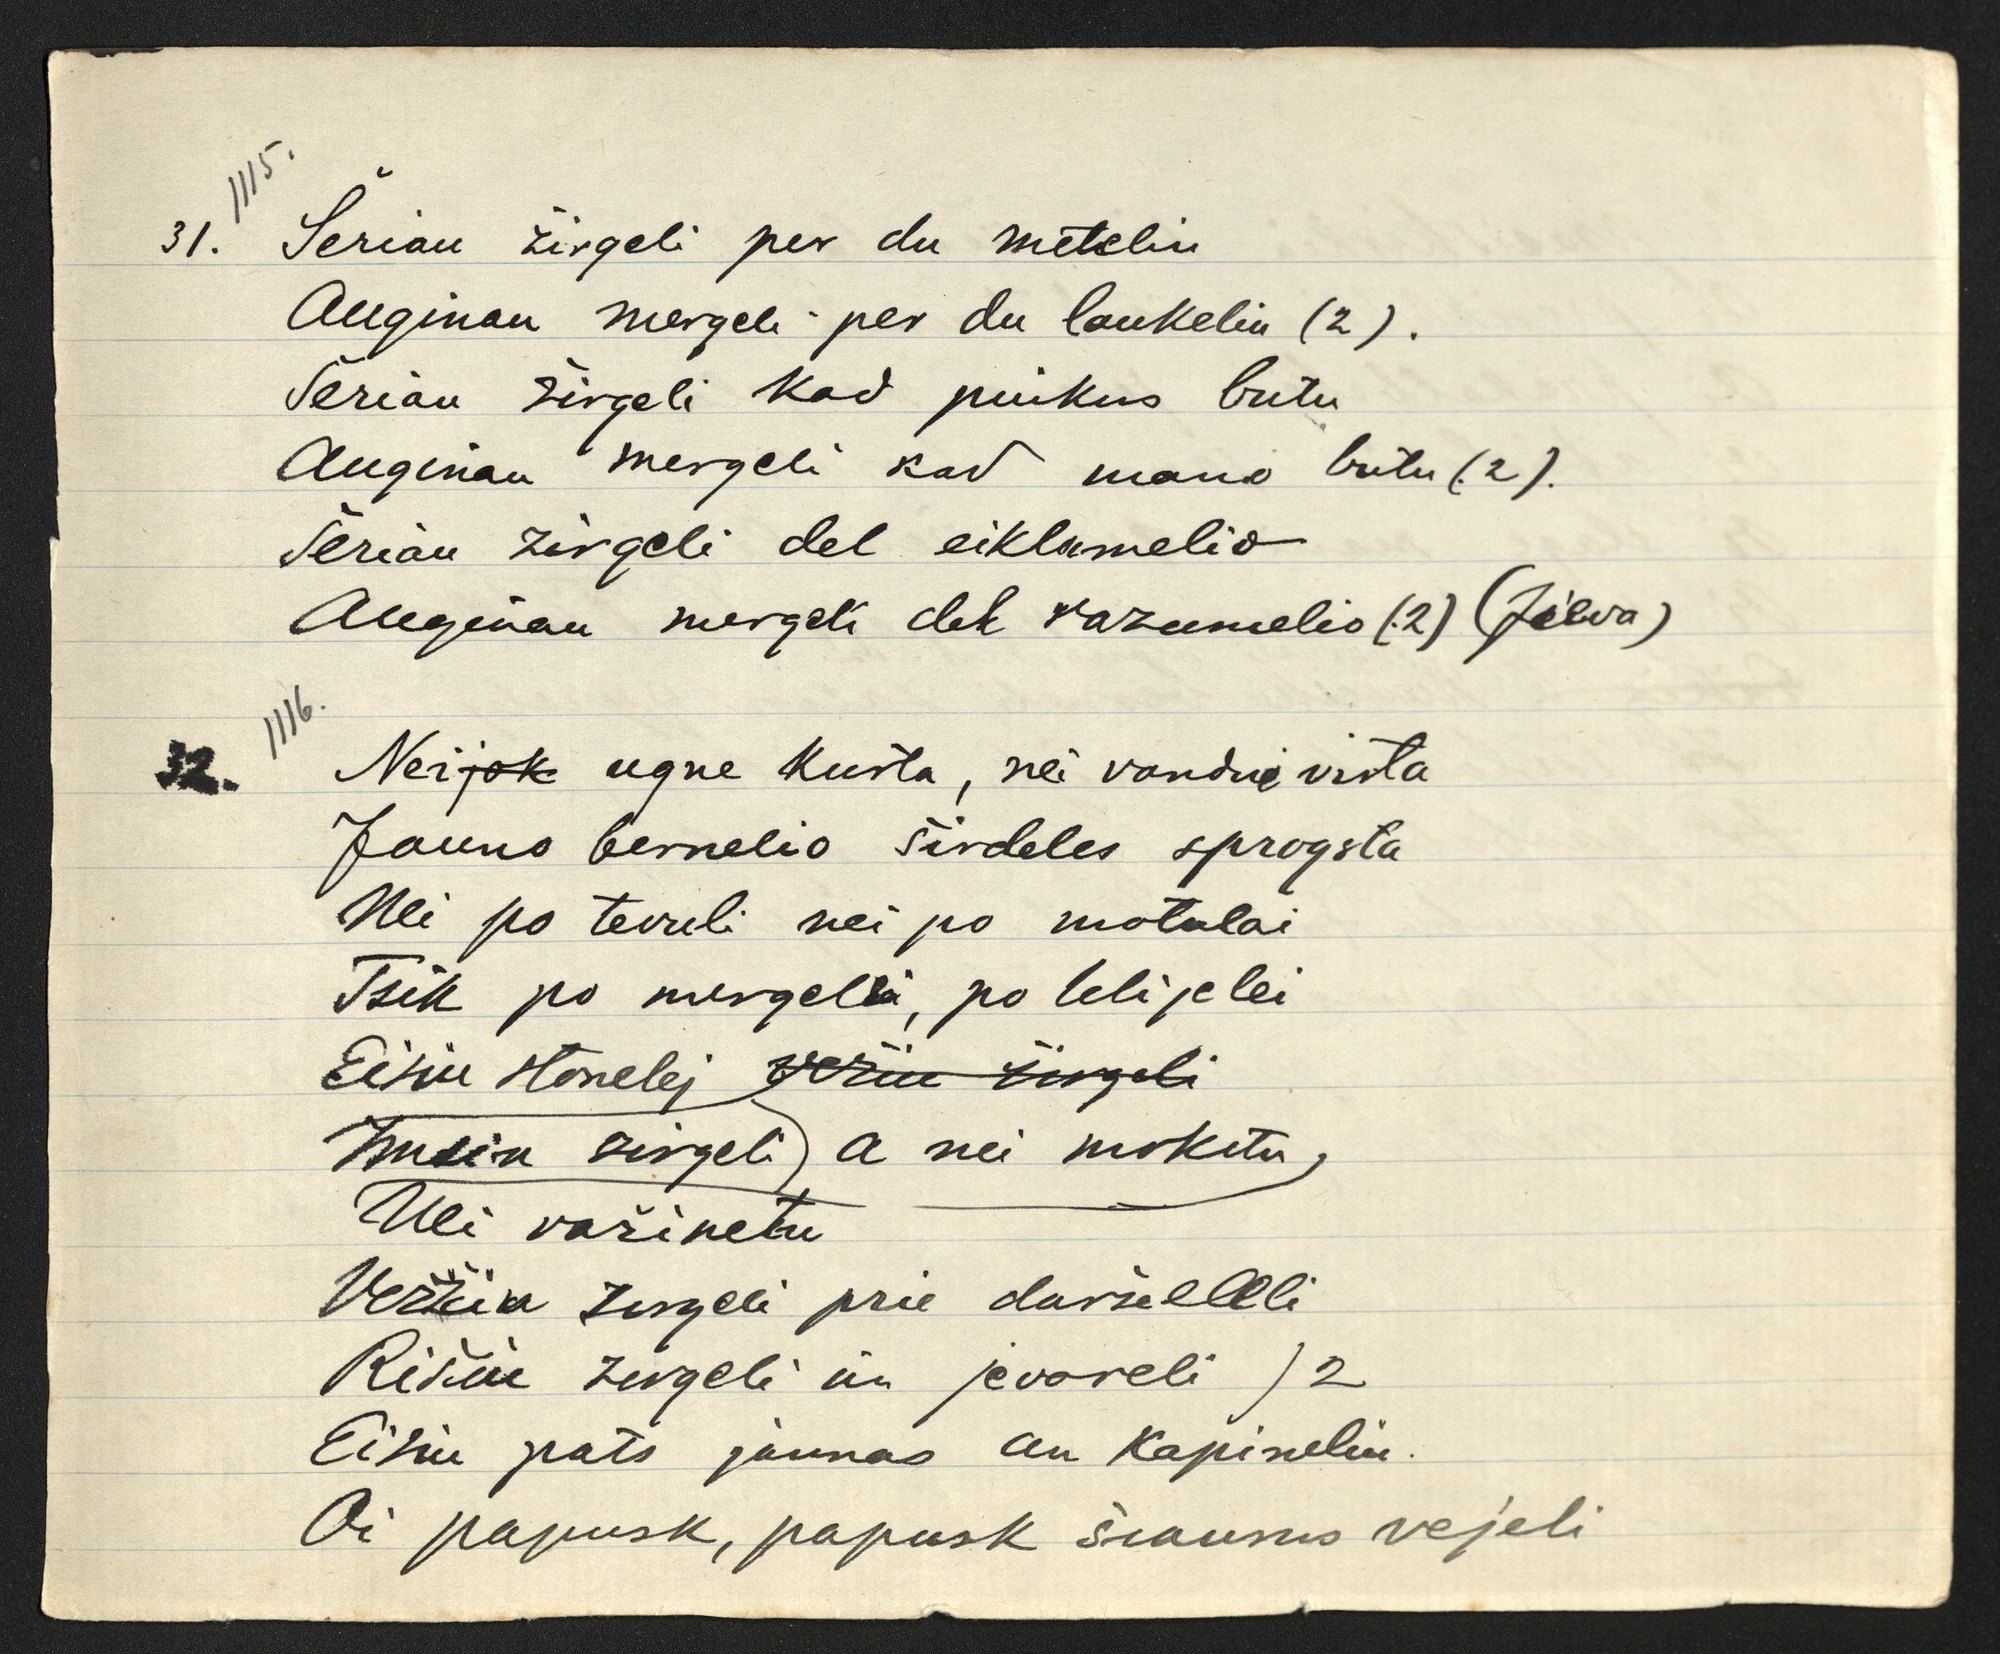 1115.
31. Šeriau žirgeli per du meteliu
Auginau mergeli per du laukeliu (2).
Šeriau žirgeli kad puikus butu
Auginau mergeli kad mano butu (2).
Šeriau žirgeli del eiklumelio
Auginau mergeli del razumelio (2) (Jieva)
1116.
32. Nei jok ugne kusta, nei vandui vista
Jauno bernelio širdeles sprogsta
Nei po tevuli nei po motulai
Tsik po mergelei, po lelijelei
Eisiu stonelej vešiu žirgeli
Imsiu žirgeli a nei moketu,
Nei važinetu
Vešiu žirgeli prie darželeli
Rišiu žirgeli in jevoreli )2
Eisiu pats jaunas an kapineliu.
Oi papusk, papusk šiaurus vejeli